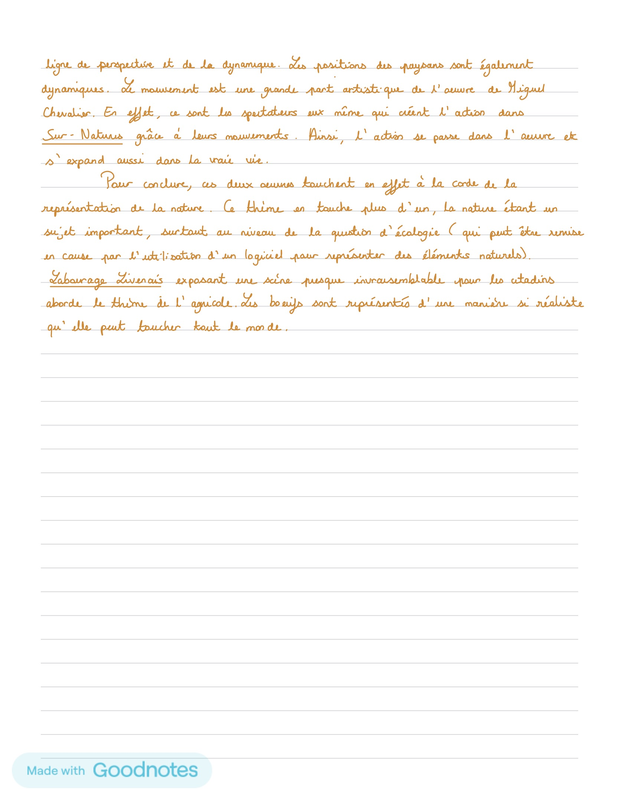 ligne de perspective et de la dynamique. Les positions des paysans sont également
dynamiques. Le mouvement est une grande part artistique de l'oeuvre de Miguel
Chevalier. En effet, ce sont les spectateurs eux même qui créent l'action dans
Sur-Natures grâce à leurs mouvements. Ainsi, l'action se passe dans l'oeuvre et
s'expand aussi dans la vraie vie.
Pour conclure, ces deux oeuvres touchent en effet à la corde de la
représentation de la nature. Ce thème en touche plus d'un, la nature étant un
sujet important, surtout au niveau de la question d'écologie (qui peut être remise
en cause par l'utilisation d'un logiciel pour représenter des éléments naturels).
Labourage Nivernais exposant une scène presque invraisemblable pour les citadins
aborde le thème de l'agricole. Les boeufs sont représentés d'une manière si réaliste
qu'elle peut toucher tout le monde.
Made with Goodnotes